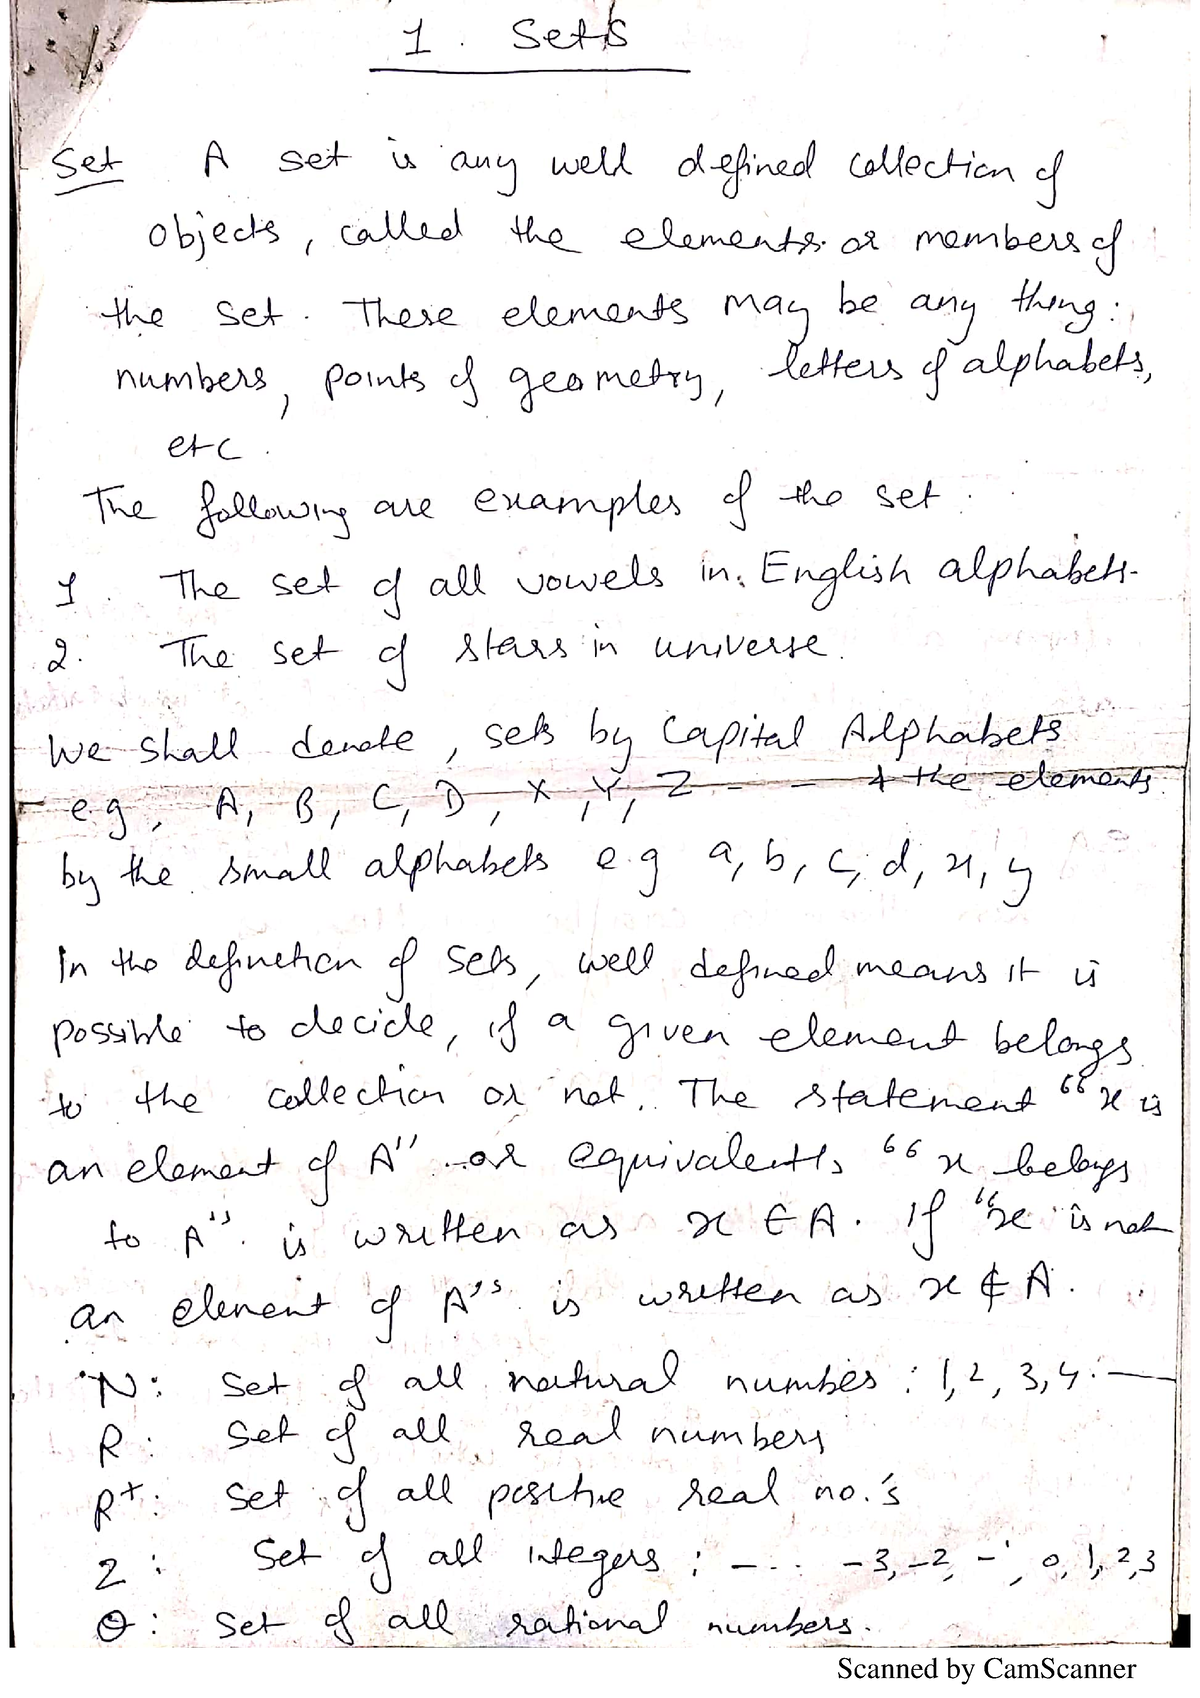 1. Sets
Set A set is any well defined collection of
objects, called the elements or members of
the set. These elements may be any thing:
numbers, points of geometry, letters of alphabets,
etc.
The following are examples of the set.
1. The set of all vowels in English alphabets.
2. The set of stars in universe.
We shall denote, sets by Capital Alphabets
e.g, A, B, C, D, X, Y, Z - - - & the elements
by the small alphabets e.g a, b, c, d, x, y
In the definetion of sets, well defined means it is
possible to decide, if a given element belongs
to the collection or not. The statement "x is
an element of A" or equivalently "x belongs
to A" is written as x ∈ A. If "x is not
an element of A" is written as x ∉ A.
N: Set of all natural numbers : 1, 2, 3, 4 . —
R: Set of all real numbers
R+: Set of all positive real no.'s
Z: Set of all integers : - . . . -3, -2, -1, 0, 1, 2, 3
Q: Set of all rational numbers.
Scanned by CamScanner